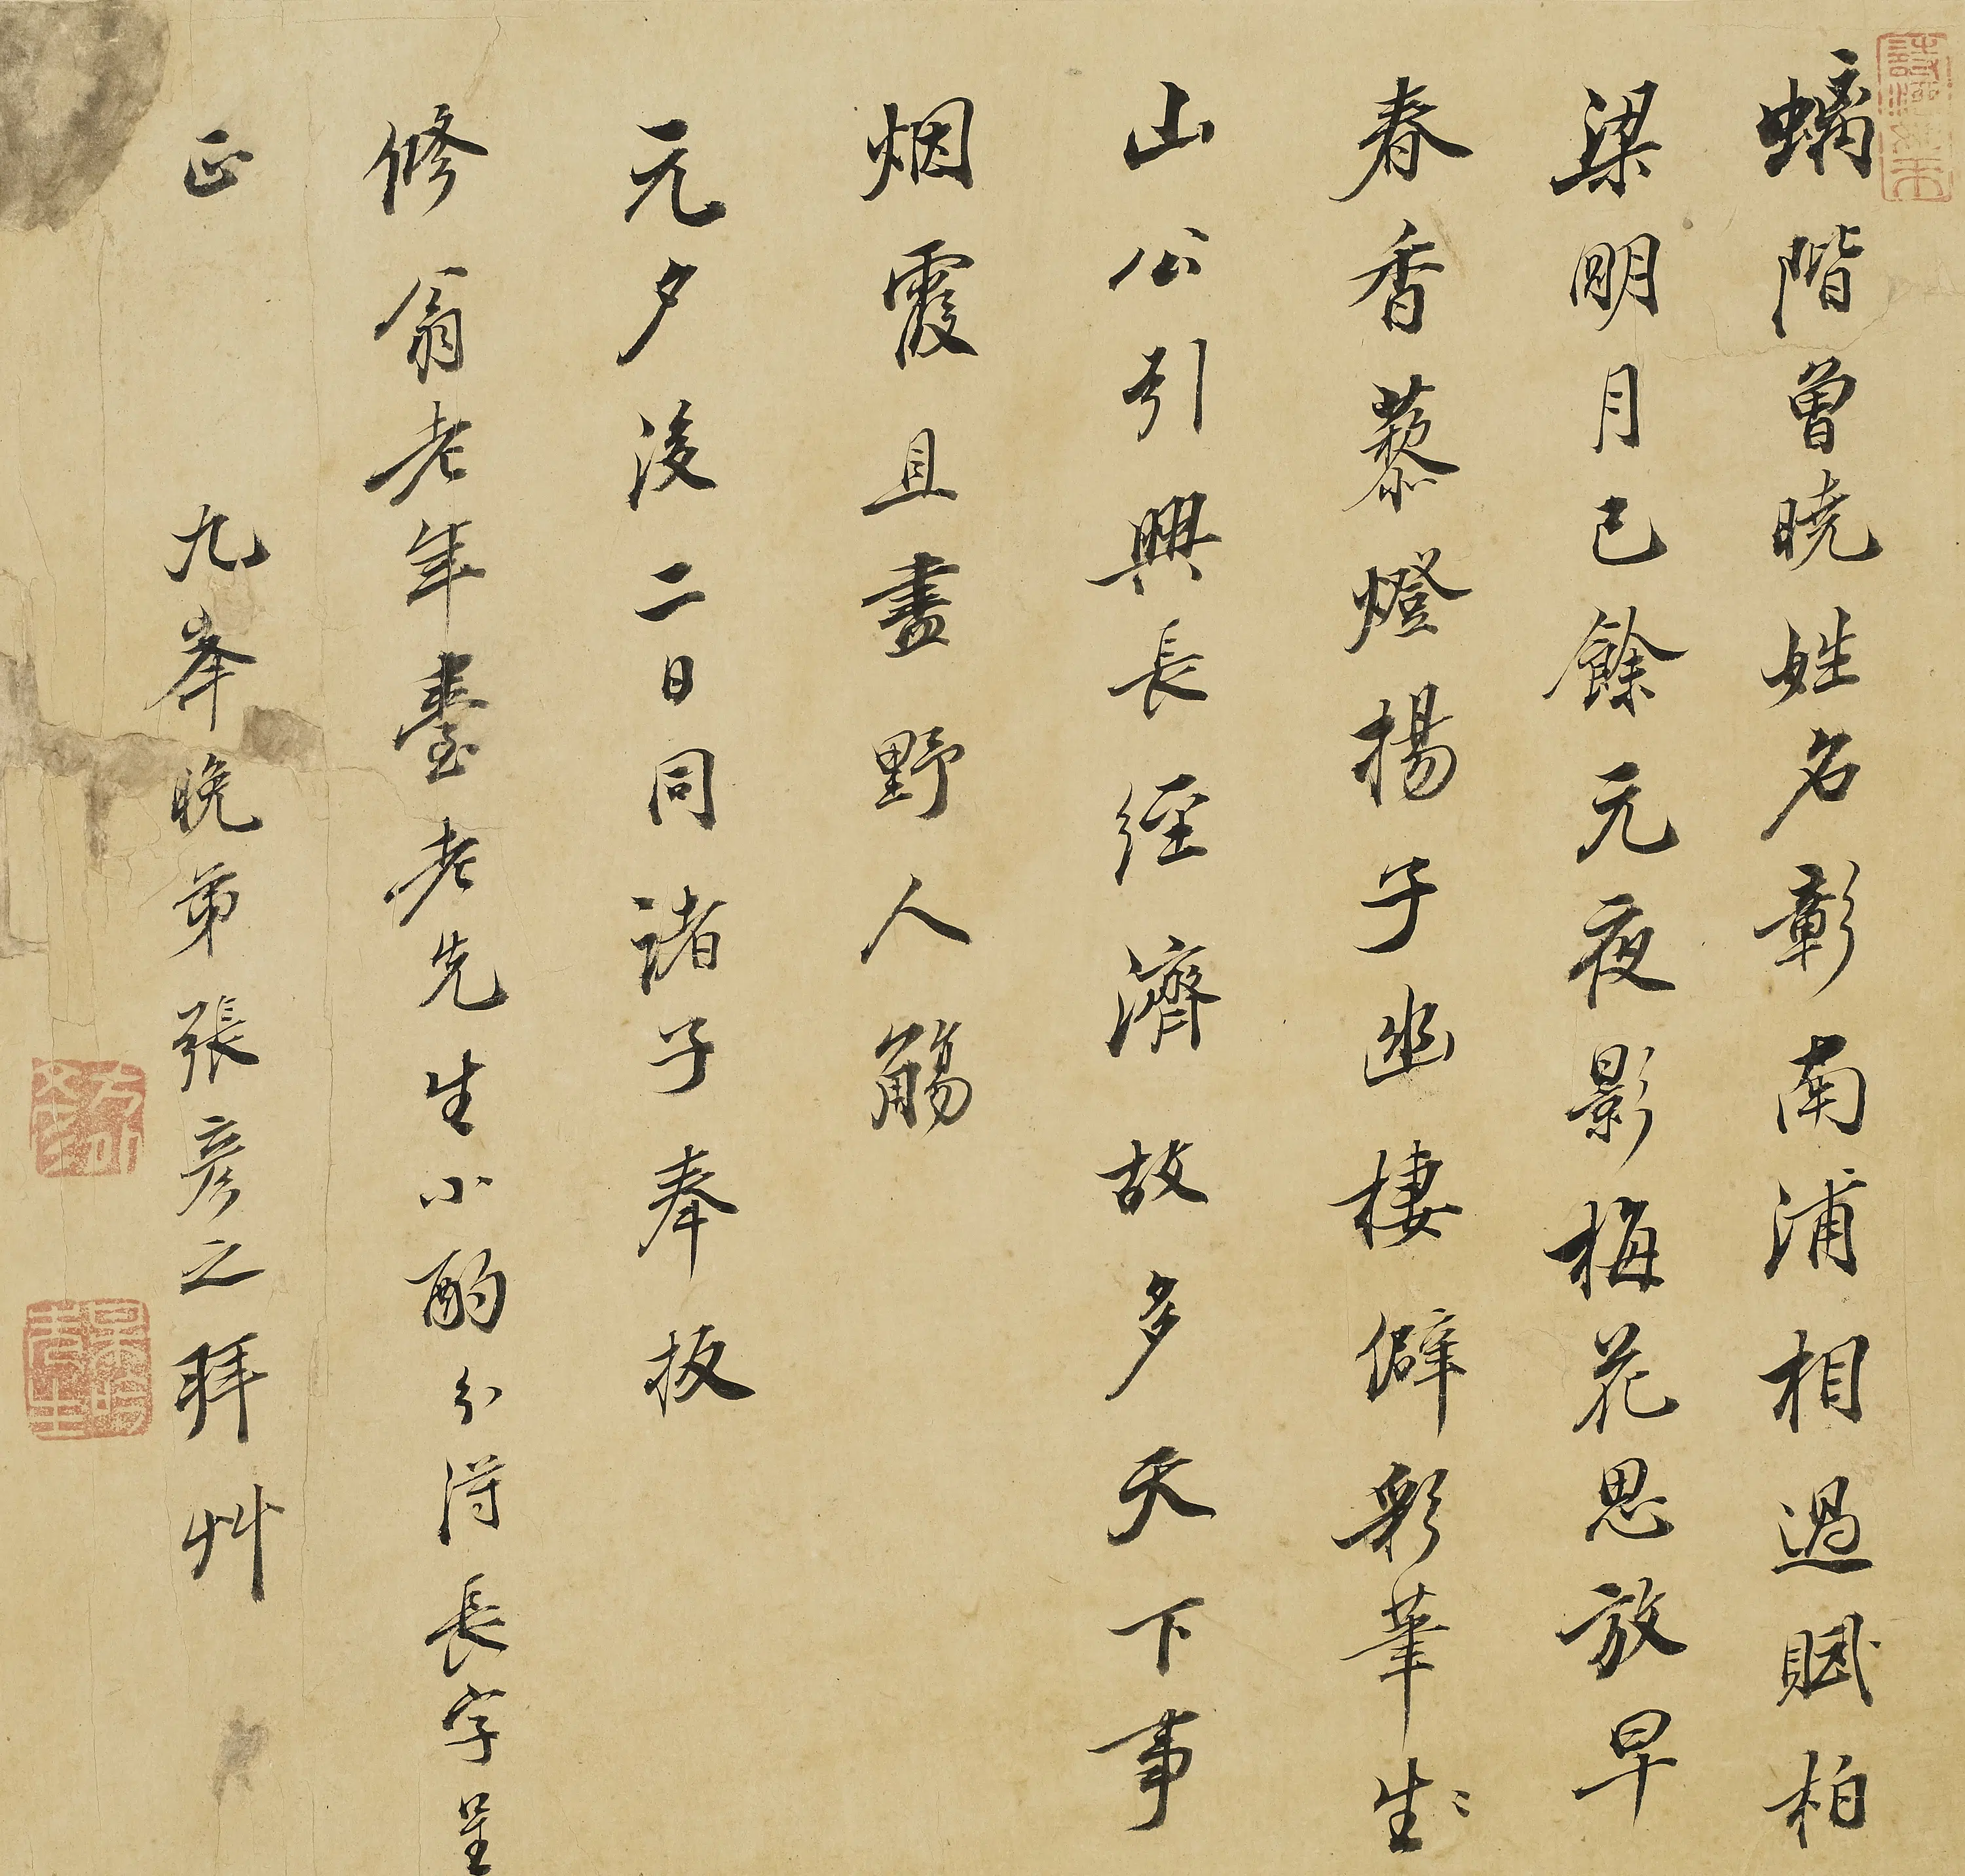 螭階曾曉姓名彰南浦相過賦柏
梁明月已餘元夜影梅花思放早
春香藜燈揚子幽棲僻彩筆生
山公引興長經濟故多天下事
烟霞且盡野人觴
元夕後二日同諸子奉扳
修翁老年臺老先生小酌分得長字呈
正　九峯晚弟張彥之拜艸